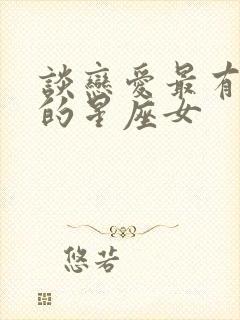 談戀愛最有
的星座女
悠若